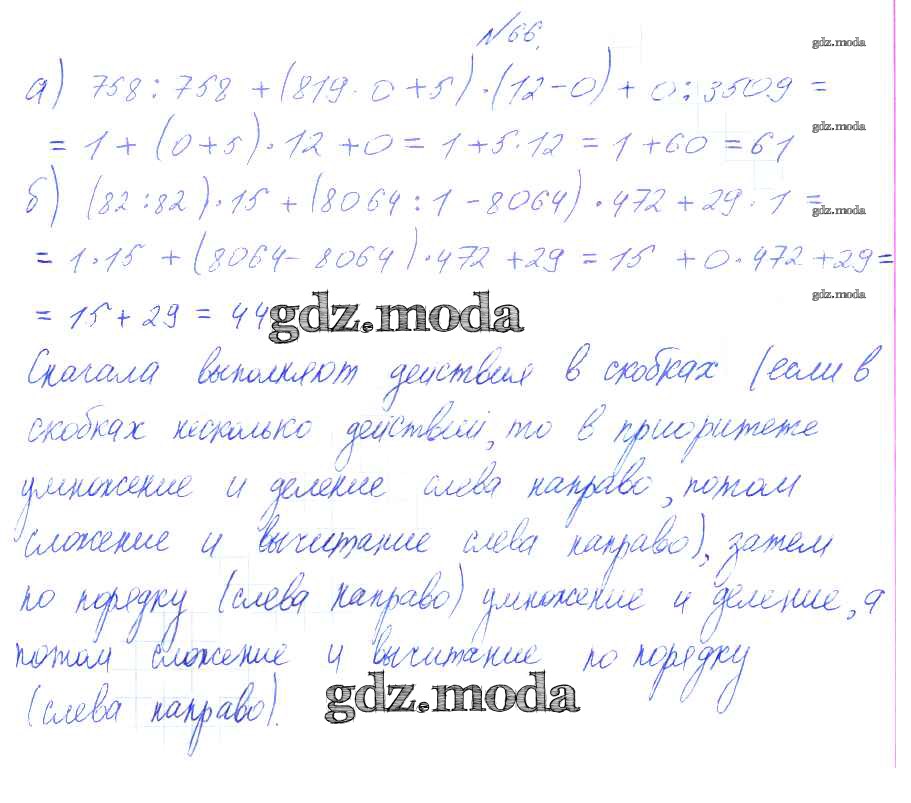 №66.
gdz.moda
а) 758 : 758 + (819 · 0 + 5) · (12 - 0) + 0 : 3509 =
gdz.moda
= 1 + (0 + 5) · 12 + 0 = 1 + 5 · 12 = 1 + 60 = 61
б) (82 : 82) · 15 + (8064 : 1 - 8064) · 472 + 29 · 1 =
gdz.moda
= 1 · 15 + (8064 - 8064) · 472 + 29 = 15 + 0 · 472 + 29 =
gdz.moda
= 15 + 29 = 44
gdz.moda
Сначала выполняют действия в скобках (если в
скобках несколько действий, то в приоритете
умножение и деление слева направо, потом
сложение и вычитание слева направо), затем
по порядку (слева направо) умножение и деление, а
потом сложение и вычитание по порядку
(слева направо).
gdz.moda